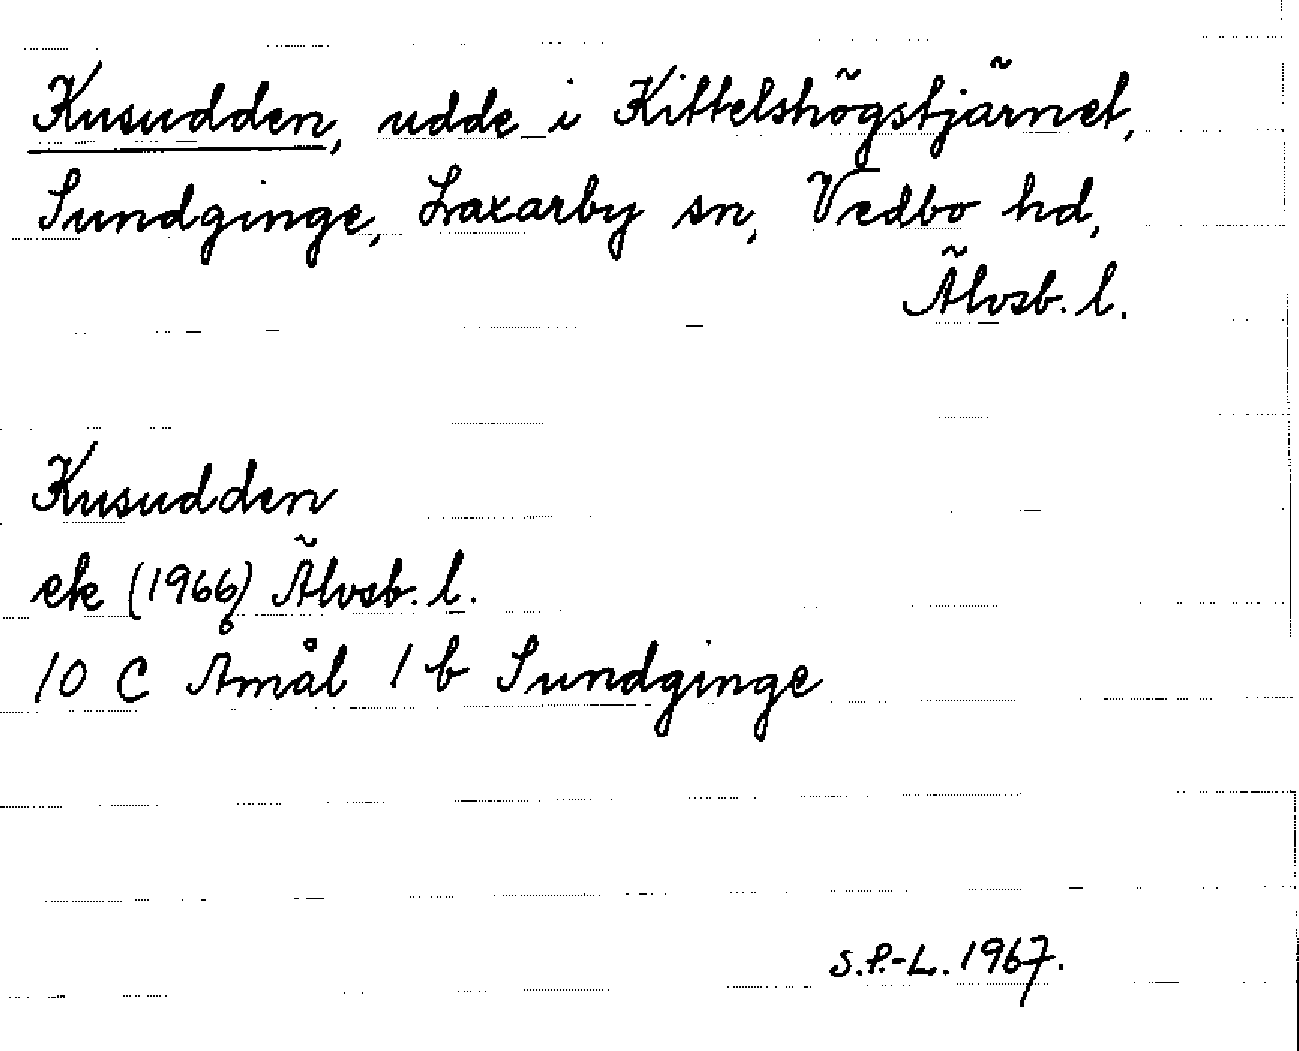 Kusudden, udde i Kittelshögstjärnet,
Sundginge, Laxarby sn, Vedbo hd,
Älvsb. l.
Kusudden
ek (1966) Älvsb. l.
10 C Åmål 1 b Sundginge
S.P.-L. 1967.